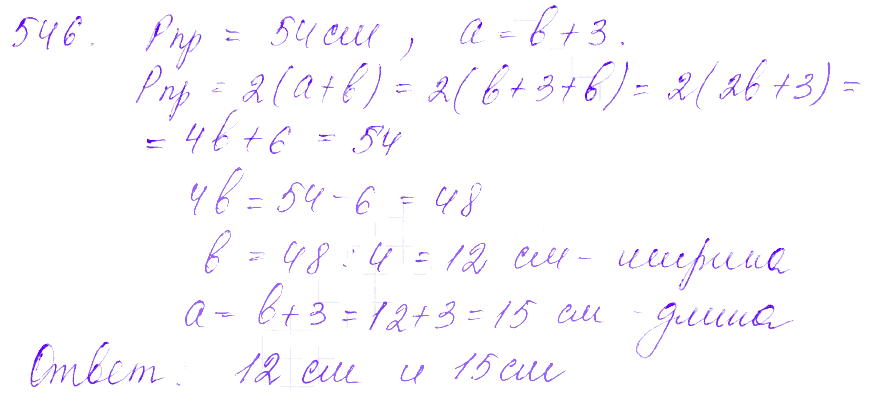 546. Pпр = 54 см, a = b + 3.
Pпр = 2(a + b) = 2(b + 3 + b) = 2(2b + 3) =
= 4b + 6 = 54
4b = 54 - 6 = 48
b = 48 : 4 = 12 см - ширина
a = b + 3 = 12 + 3 = 15 см - длина
Ответ: 12 см и 15 см